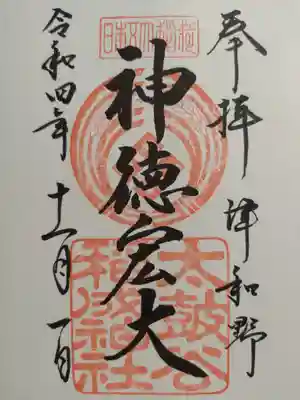 奉拝 津和野
日本五大稲荷
神徳宏大
太皷谷
稲成神社
令和四年 十一月一日